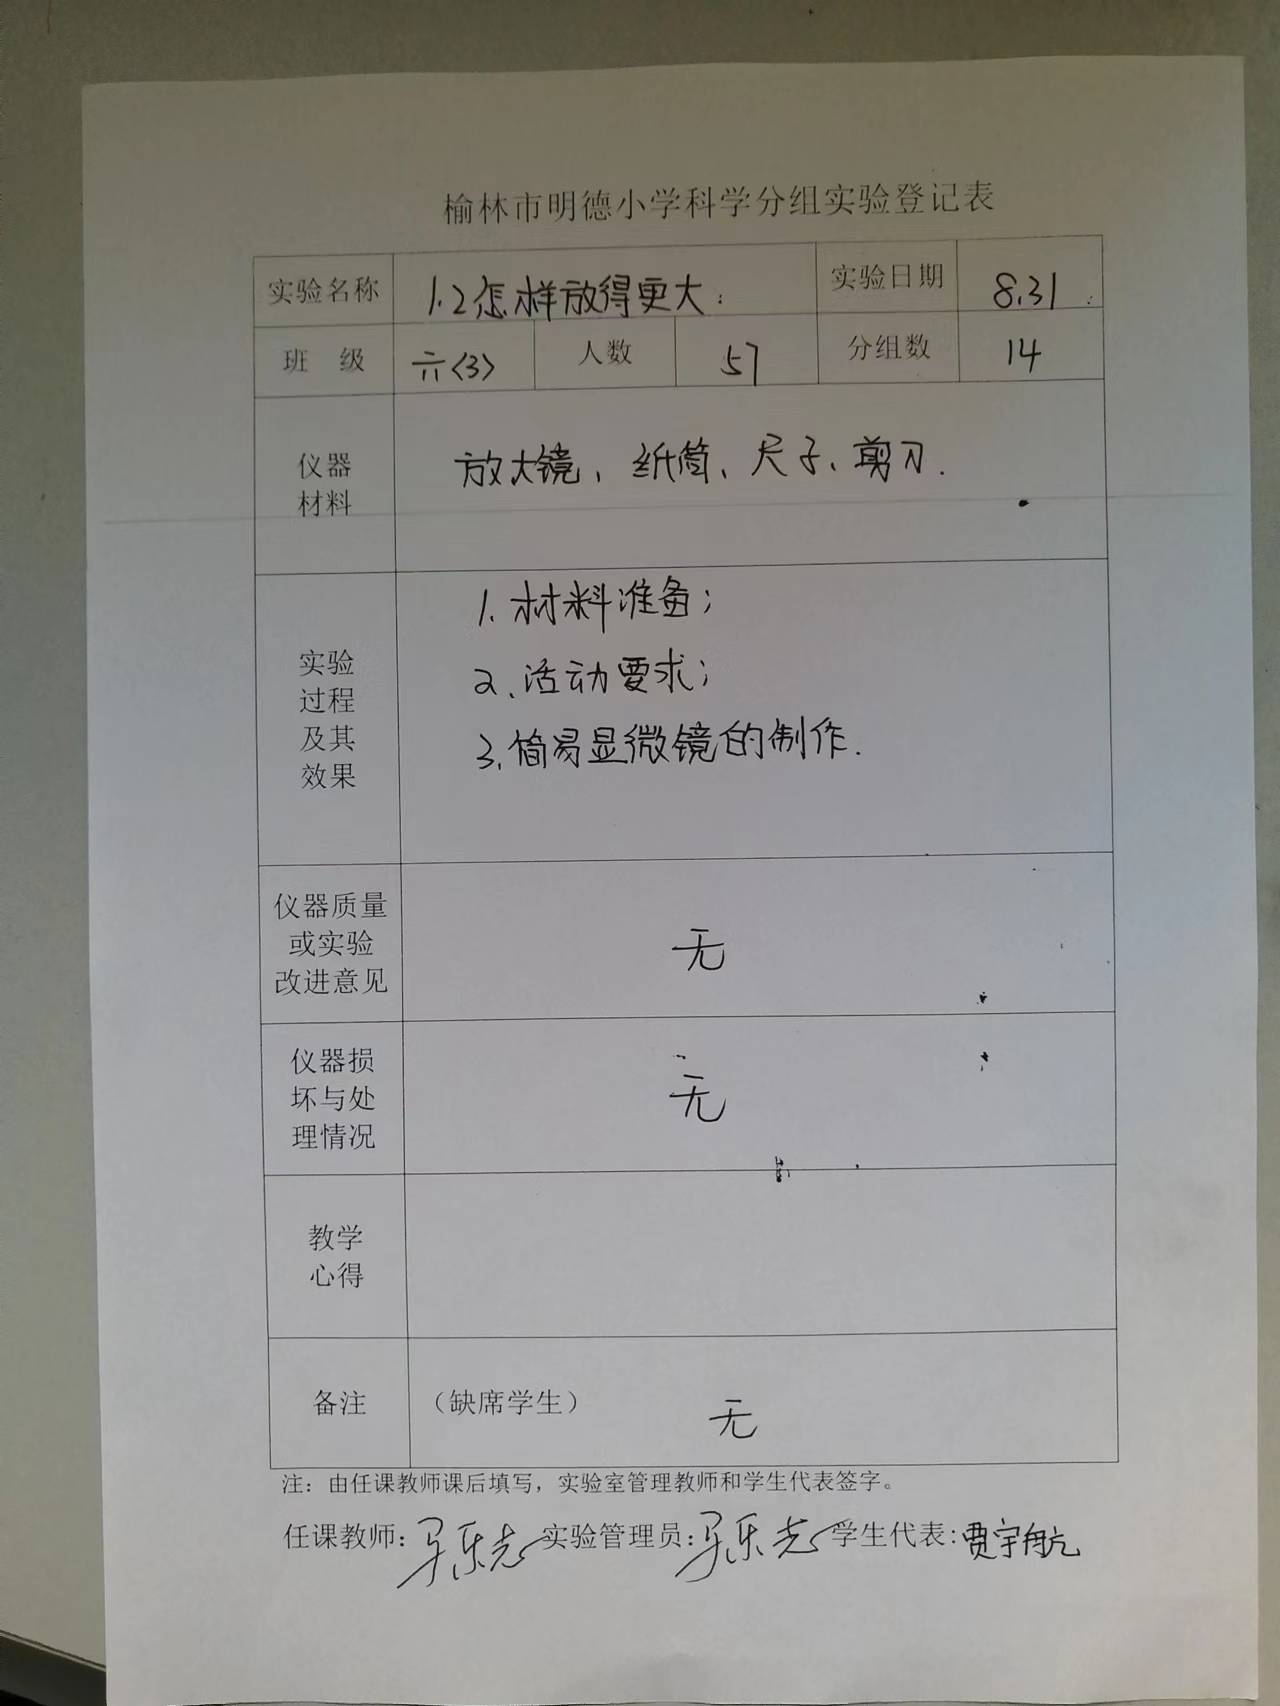 榆林市明德小学科学分组实验登记表
实验名称 1.2怎样放得更大 实验日期 8.31
班 级 六〈3〉 人数 57 分组数 14
仪器
材料
放大镜、纸筒、尺子、剪刀.
实验
过程
及其
效果
1.材料准备;
2.活动要求;
3.简易显微镜的制作.
仪器质量
或实验
改进意见
无
仪器损
坏与处
理情况
无
教学
心得
备注 （缺席学生） 无
注：由任课教师课后填写，实验室管理教师和学生代表签字。
任课教师: 实验管理员: 学生代表:贾宇航